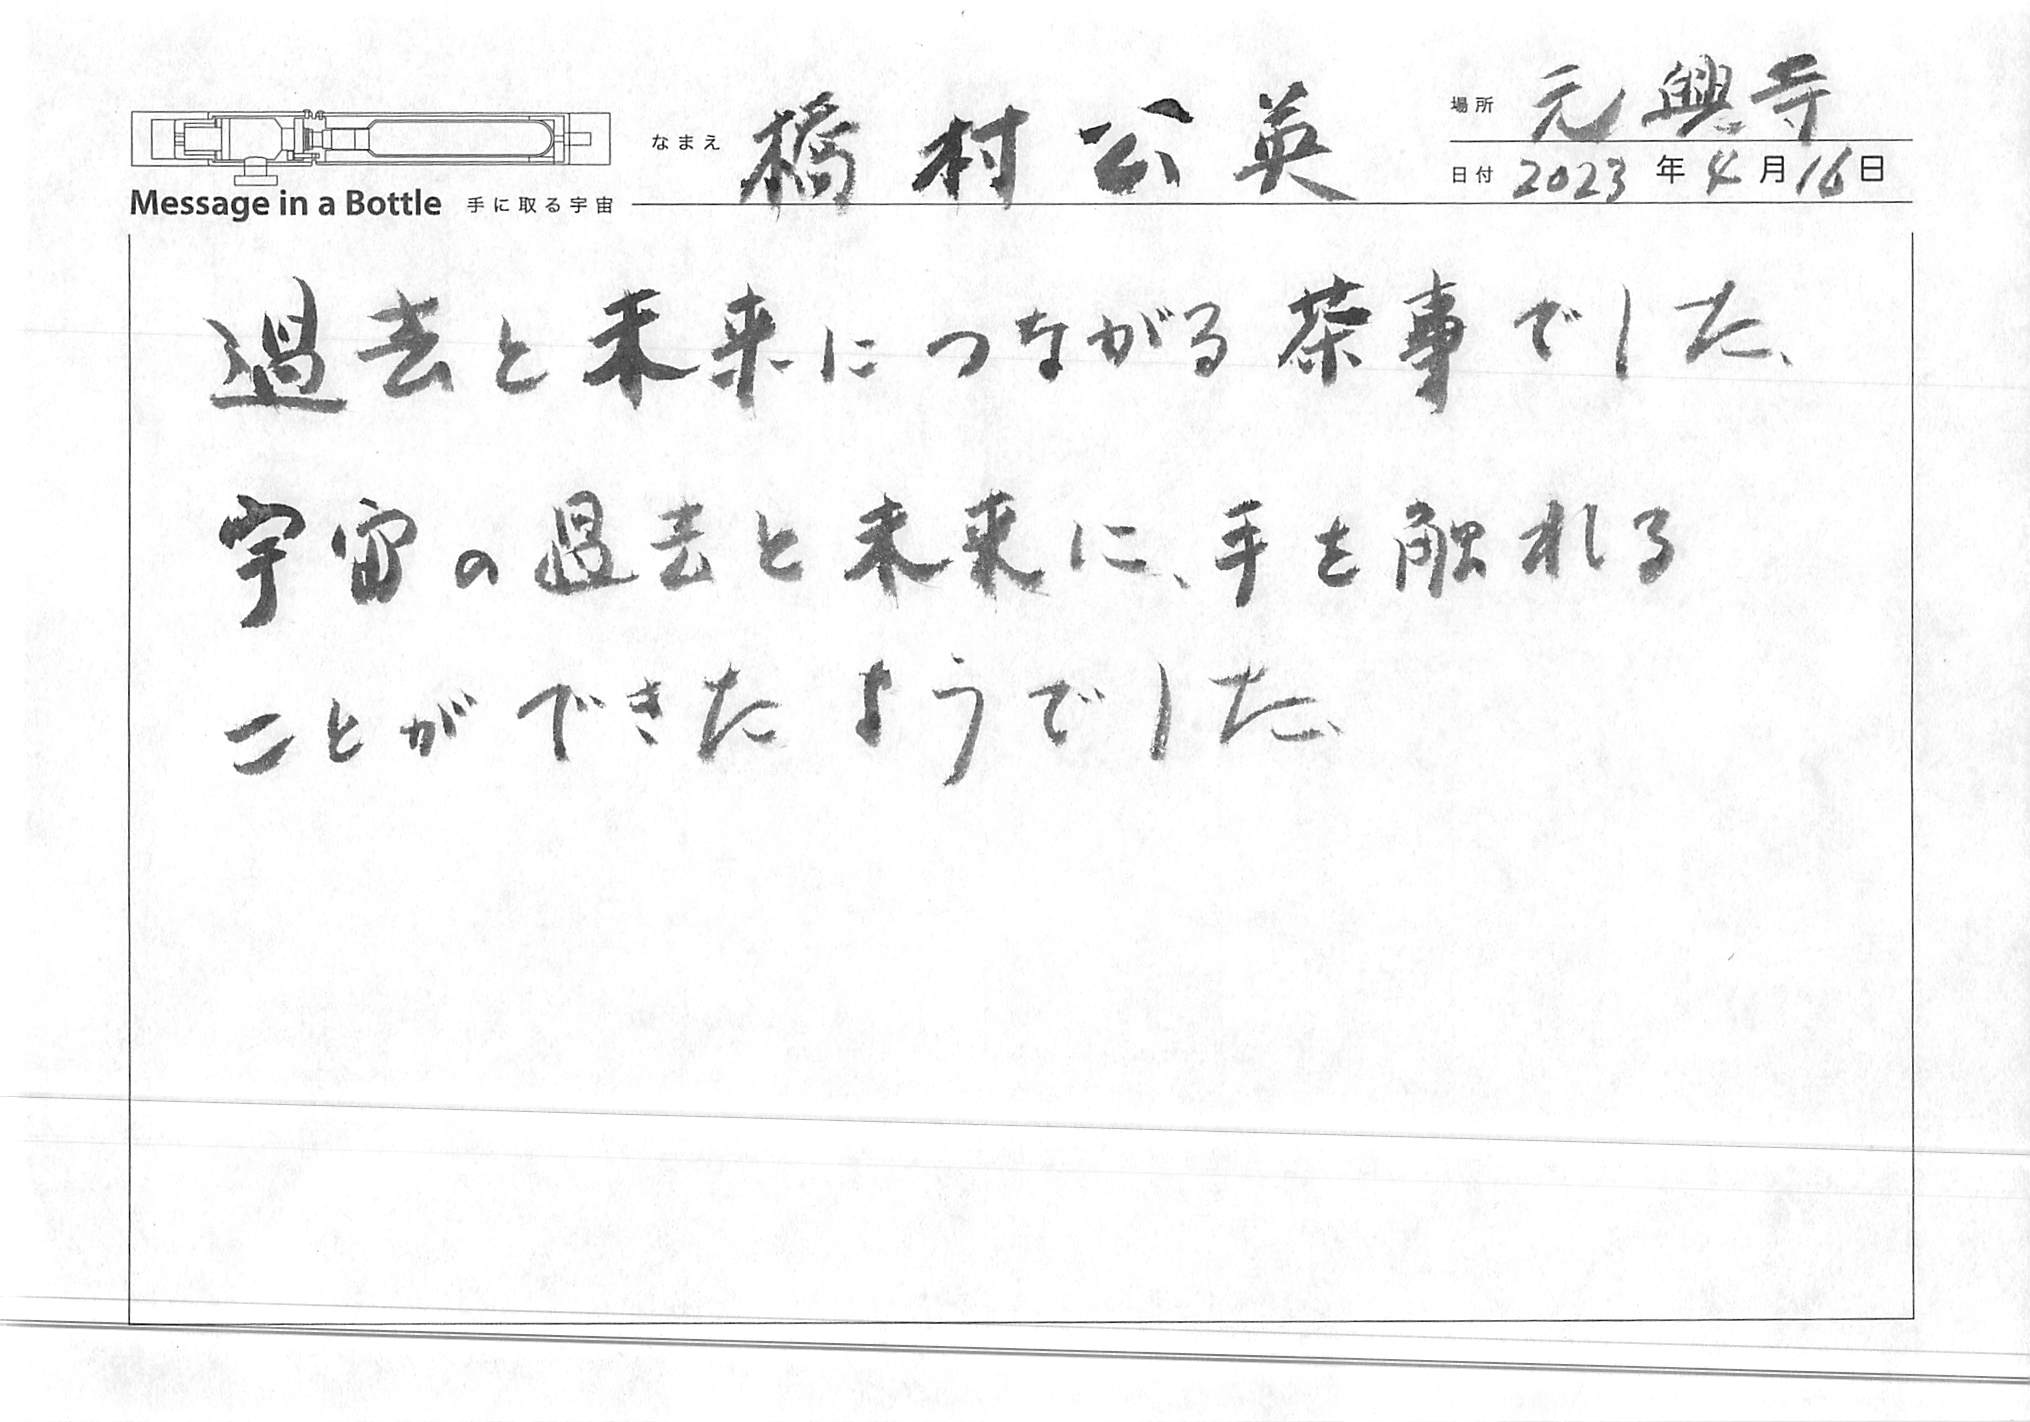 Message in a Bottle 手に取る宇宙
なまえ 橋村公英
場所 元興寺
日付 2023年4月16日
過去と未来につながる茶事でした、
宇宙の過去と未来に、手を触れる
ことができたようでした、